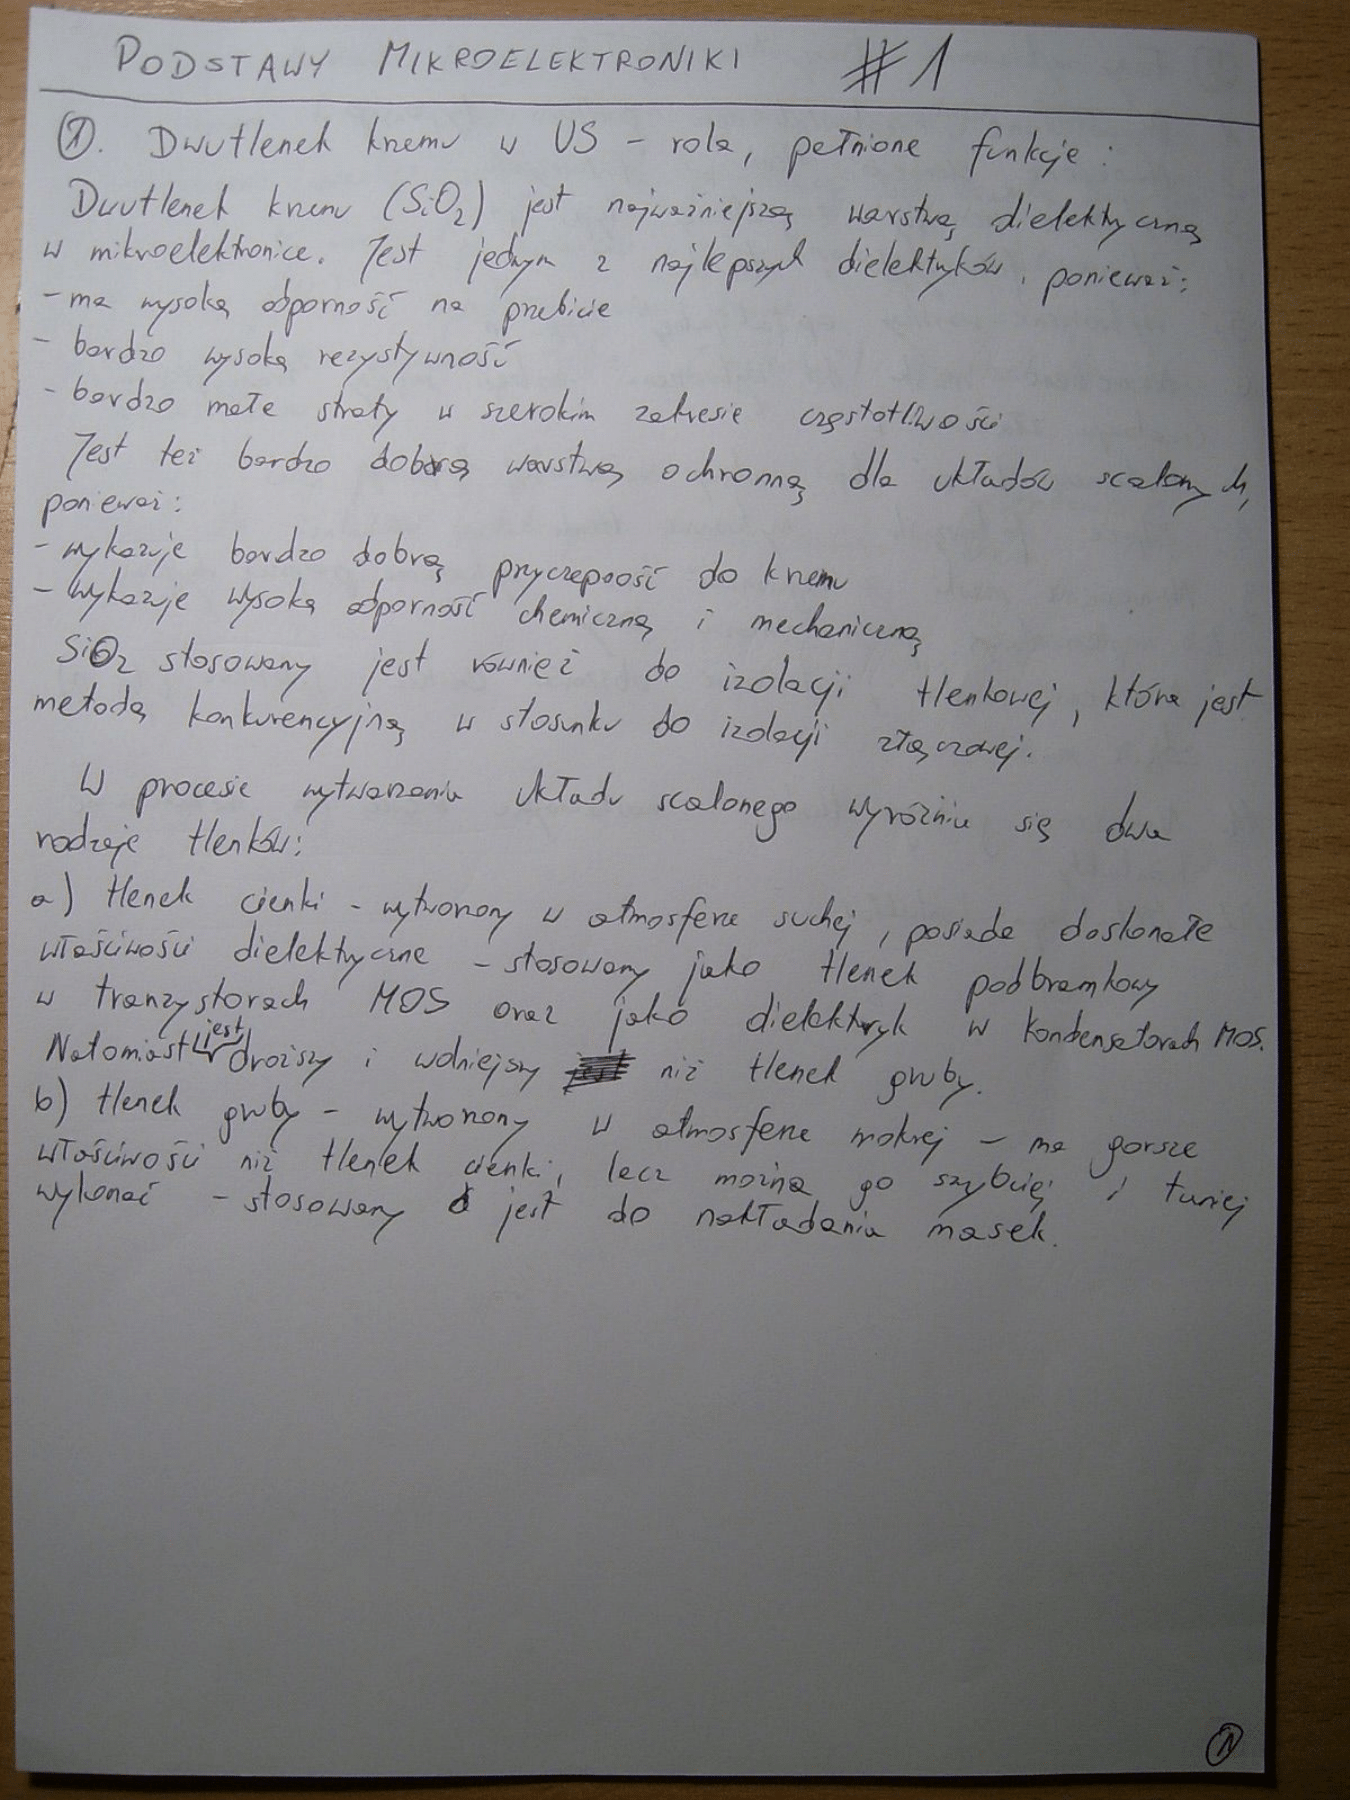 PODSTAWY MIKROELEKTRONIKI #1
①. Dwutlenek krzemu w US - rola, pełnione funkcje :
Dwutlenek krzemu (SiO₂) jest najważniejszą warstwą dielektryczną
w mikroelektronice. Jest jednym z najlepszych dielektryków, ponieważ:
- ma wysoką odporność na przebicie
- bardzo wysoką rezystywność
- bardzo małe straty w szerokim zakresie częstotliwości
Jest też bardzo dobrą warstwą ochronną dla układów scalonych,
ponieważ:
- wykazuje bardzo dobrą przyczepność do krzemu
- wykazuje wysoką odporność chemiczną i mechaniczną
SiO₂ stosowany jest również do izolacji tlenkowej, która jest
metodą konkurencyjną w stosunku do izolacji złączowej.
W procesie wytwarzania układu scalonego wyróżnia się dwa
rodzaje tlenków:
a) tlenek cienki - wytworzony w atmosferze suchej, posiada doskonałe
właściwości dielektryczne - stosowany jako tlenek podbramkowy
w tranzystorach MOS oraz jako dielektryk w kondensatorach MOS.
Natomiast jest droższy i wolniejszy niż tlenek gruby.
b) tlenek gruby - wytworzony w atmosferze mokrej - ma gorsze
właściwości niż tlenek cienki, lecz można go szybciej i taniej
wykonać - stosowany jest do nakładania masek.
①